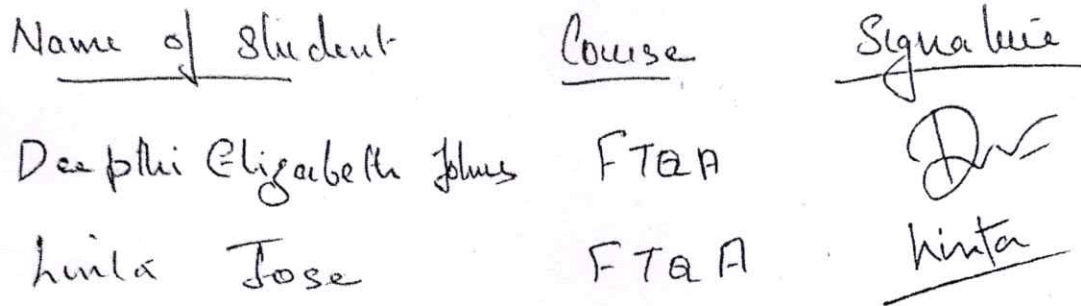 Name of Student Course Signature
Deepthi Elizabeth Johns FTQA
Linta Jose FTQA Linta